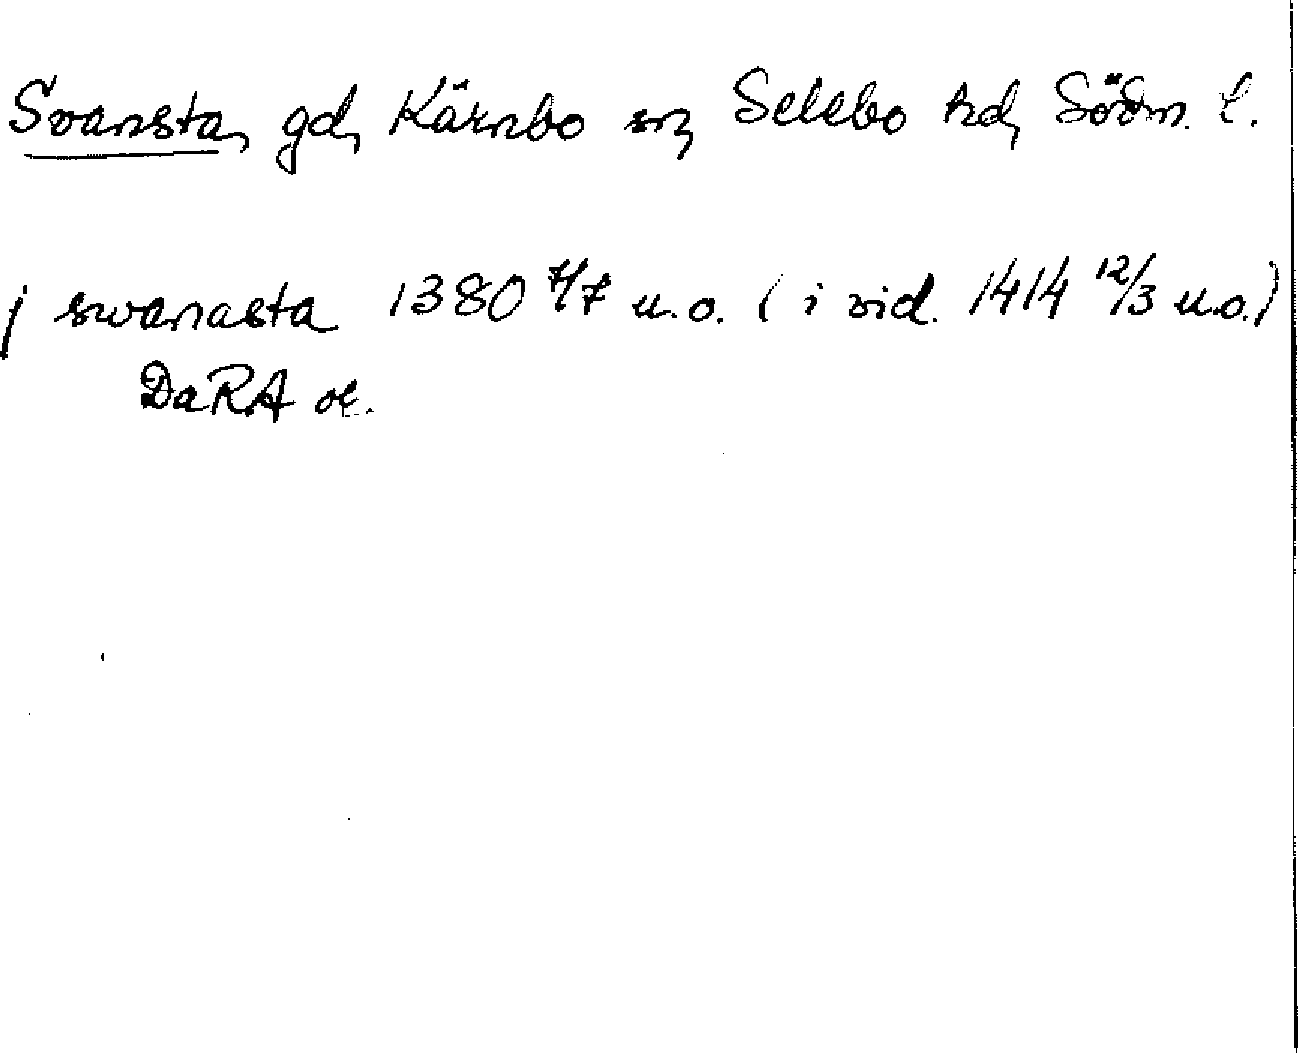 Svansta, gd, Kärnbo sn, Selebo hd, Södm. l.
j swanasta 1380 7/7 u.o. (i vid. 1414 12/3 u.o.)
DaRA or.